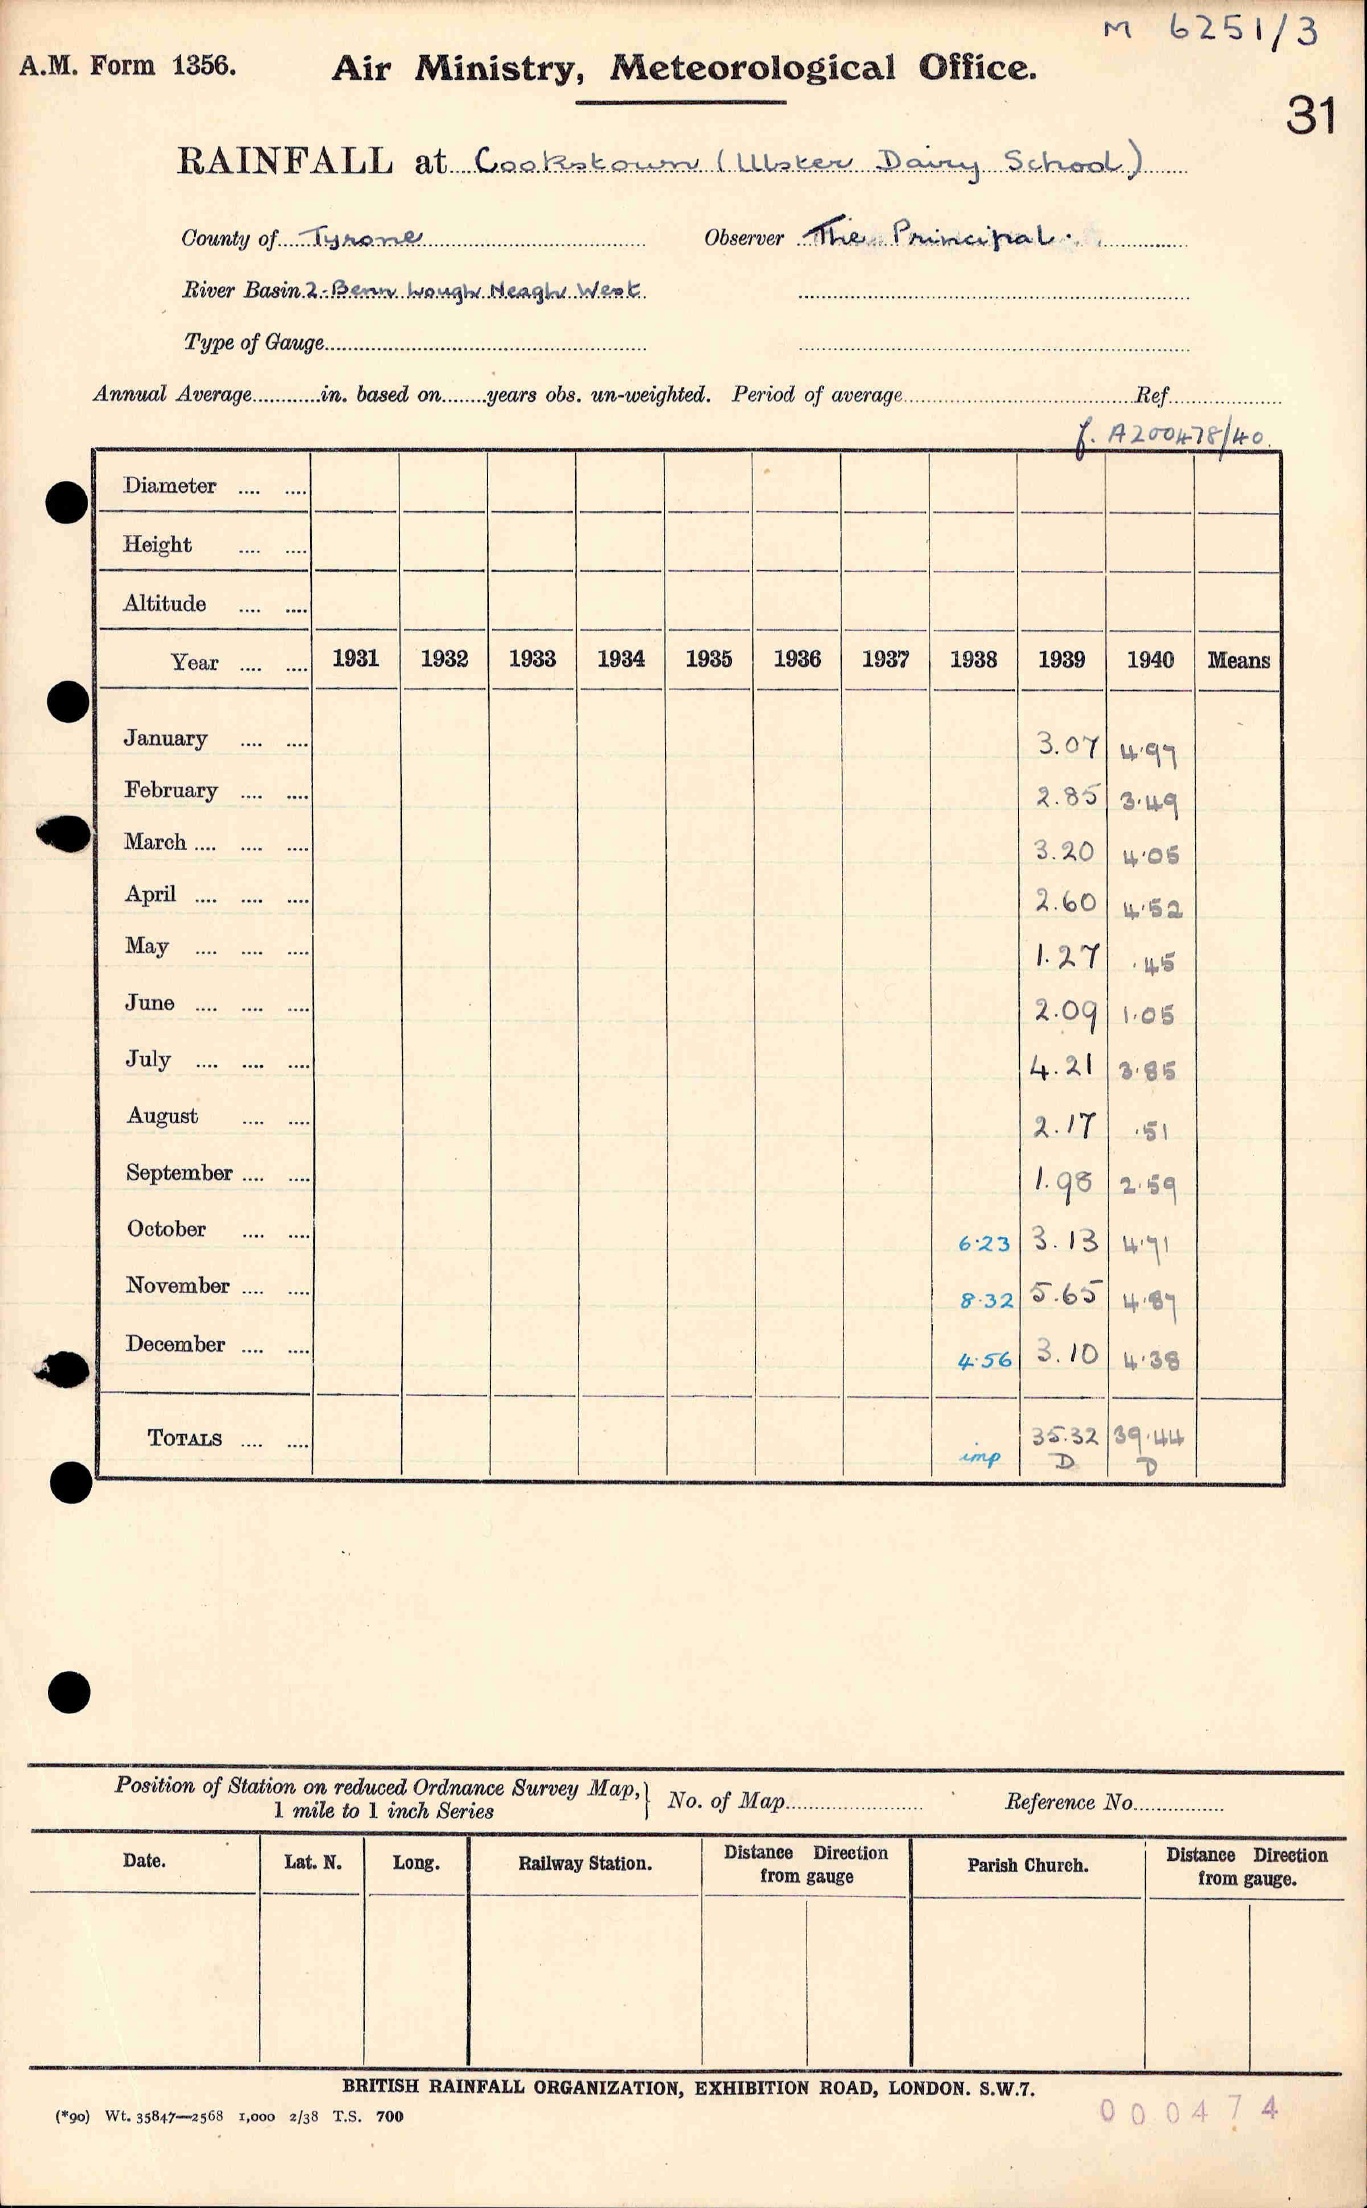 M 6251/3
A.M. Form 1356. Air Ministry, Meteorological Office.
31
RAINFALL at Cookstown (Ulster Dairy School)
County of Tyrone Observer The Principal.
River Basin 2. Benn Lough Neagh West
Type of Gauge
Annual Average in. based on years obs. un-weighted. Period of average Ref
f. A200478/40
Diameter
Height
Altitude
Year 1931 1932 1933 1934 1935 1936 1937 1938 1939 1940 Means
January 3.07 4.97
February 2.85 3.49
March 3.20 4.05
April 2.60 4.52
May 1.27 .45
June 2.09 1.05
July 4.21 3.85
August 2.17 .51
September 1.98 2.59
October 6.23 3.13 4.71
November 8.32 5.65 4.87
December 4.56 3.10 4.38
TOTALS imp 35.32 39.44
D D
Position of Station on reduced Ordnance Survey Map, } No. of Map Reference No.
1 mile to 1 inch Series
Date. Lat. N. Long. Railway Station. Distance Direction from gauge Parish Church. Distance Direction from gauge.
BRITISH RAINFALL ORGANIZATION, EXHIBITION ROAD, LONDON. S.W.7.
(*90) Wt. 35847—2568 1,000 2/38 T.S. 700
000474